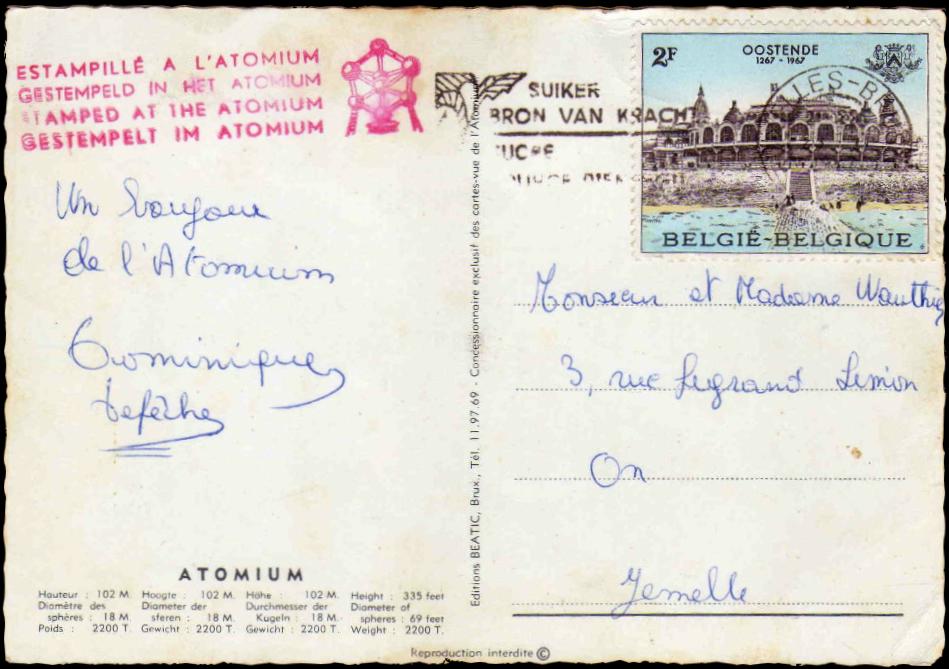 ESTAMPILLÉ A L'ATOMIUM
GESTEMPELD IN HET ATOMIUM
STAMPED AT THE ATOMIUM
GESTEMPELT IM ATOMIUM
SUIKER
BRON VAN KRACHT
SUCRE
2F
OOSTENDE
1267 - 1967
BELGIË-BELGIQUE
Un bonjour
de l'Atomium
Dominique
Monsieur et Madame Wauthy
3, rue Legrand Limon
On
Jemelle
Editions BEATIC, Brux., Tél. 11.97.69 - Concessionnaire exclusif des cartes-vue de l'Atomium
ATOMIUM
Hauteur : 102 M.
Diamètre des
sphères : 18 M.
Poids : 2200 T.
Hoogte : 102 M.
Diameter der
sferen : 18 M.
Gewicht : 2200 T.
Höhe : 102 M.
Durchmesser der
Kugeln : 18 M.
Gewicht : 2200 T.
Height : 335 feet
Diameter of
spheres : 69 feet
Weight : 2200 T.
Reproduction interdite ©